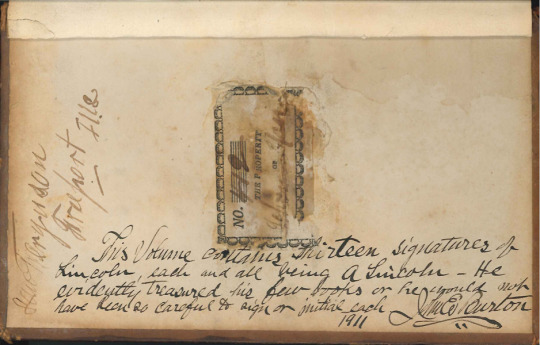 Freeport Ills
NO.
THE PROPERTY
OF
This Volume contains Thirteen signatures of
Lincoln, each and all being A Lincoln - He
evidently treasured his few books or he would not
have been so careful to sign or initial each
Burton
1911